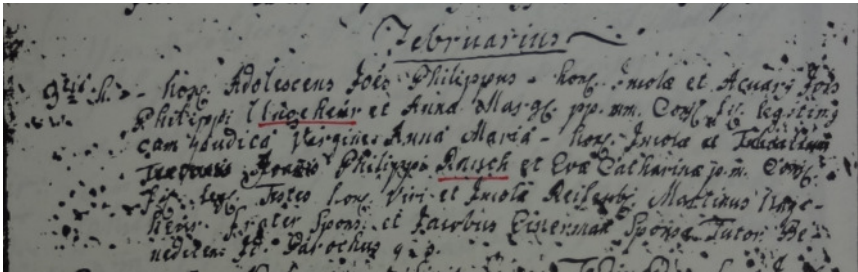 Februarius
9tis h. - hon. Adolescens Jois Philippus - hon. Incolæ et Acuarÿ Jois
Philippi Ungeheür et Anna Marg. pp. mm. Conj. fil. legitimg
cum pudica Virgine Anna Maria - hon. Incolæ et
Philippi Rausch et Evæ Catharinæ p.m. Conj.
fil. leg. Testes hon. Viri et Incolæ Reifenb. Martinus Unge-
heür frater Sponsi et Jacobus Eisterman Sponsæ Tutor Be-
nedicens Id. Parochus q. s.